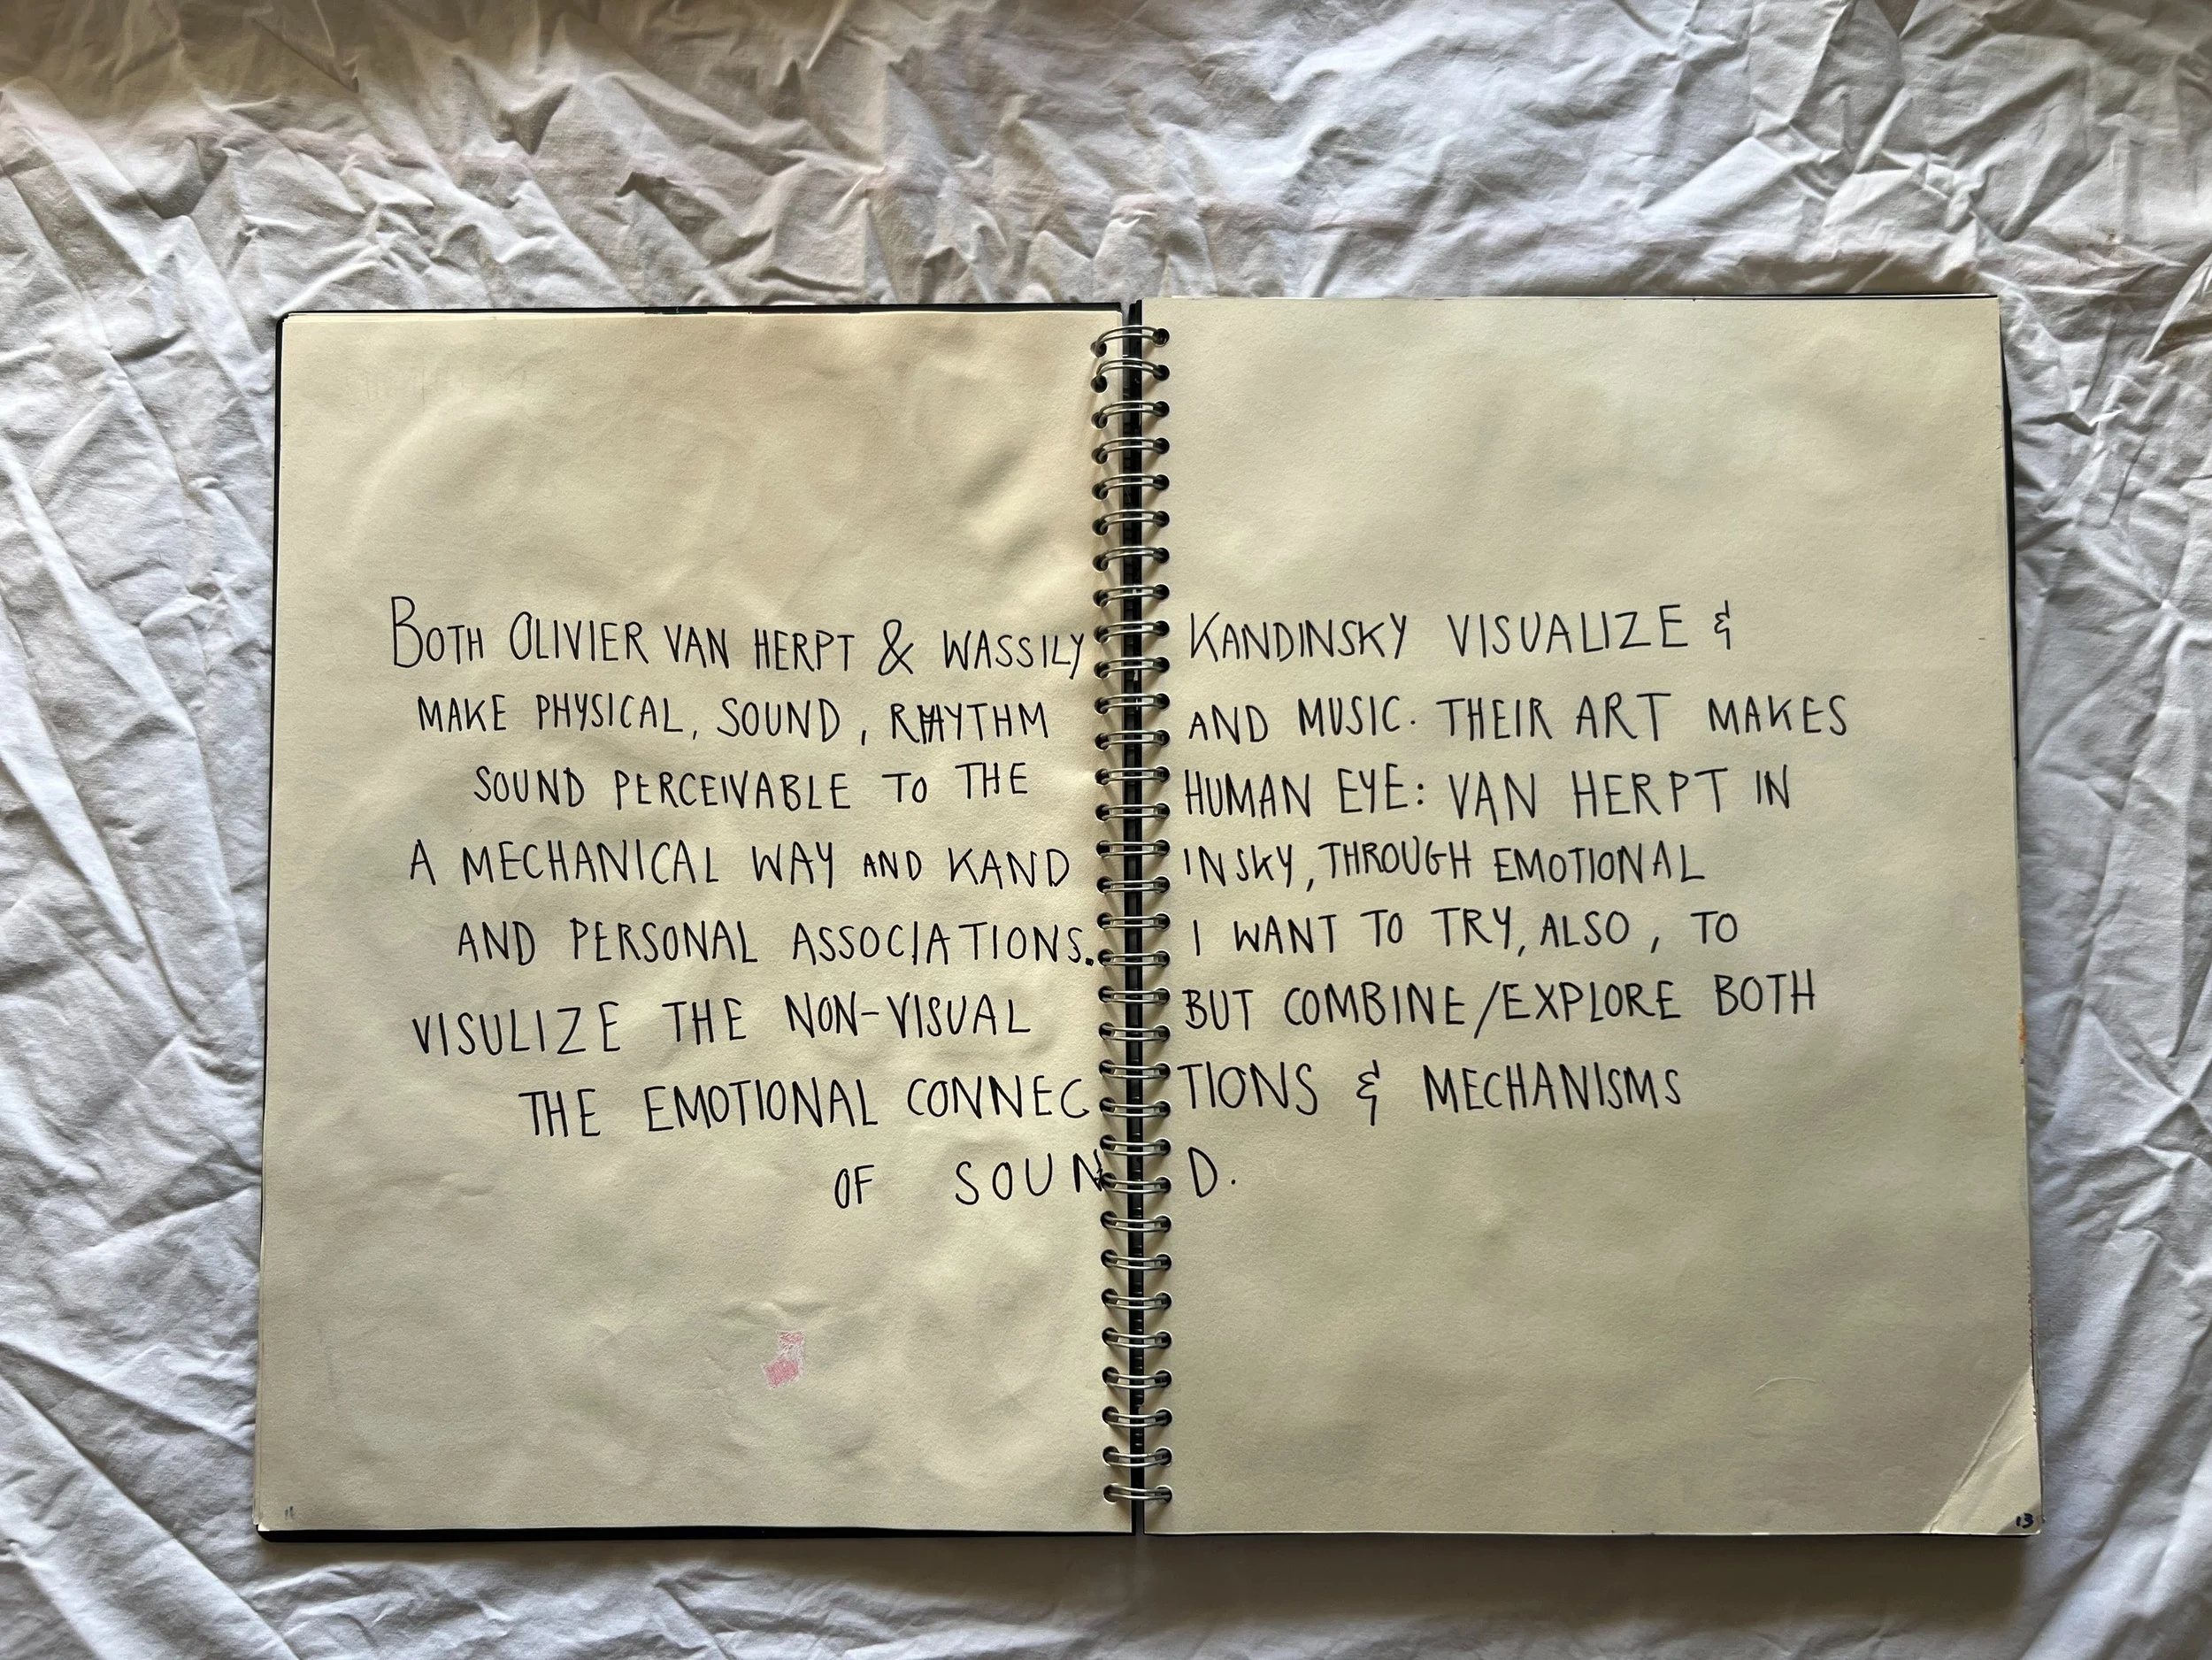 BOTH OLIVIER VAN HERPT & WASSILY KANDINSKY VISUALIZE &
MAKE PHYSICAL, SOUND, RHYTHM AND MUSIC. THEIR ART MAKES
SOUND PERCEIVABLE TO THE HUMAN EYE: VAN HERPT IN
A MECHANICAL WAY AND KANDINSKY, THROUGH EMOTIONAL
AND PERSONAL ASSOCIATIONS. I WANT TO TRY, ALSO, TO
VISULIZE THE NON-VISUAL BUT COMBINE/EXPLORE BOTH
THE EMOTIONAL CONNECTIONS & MECHANISMS
OF SOUND.
11
13